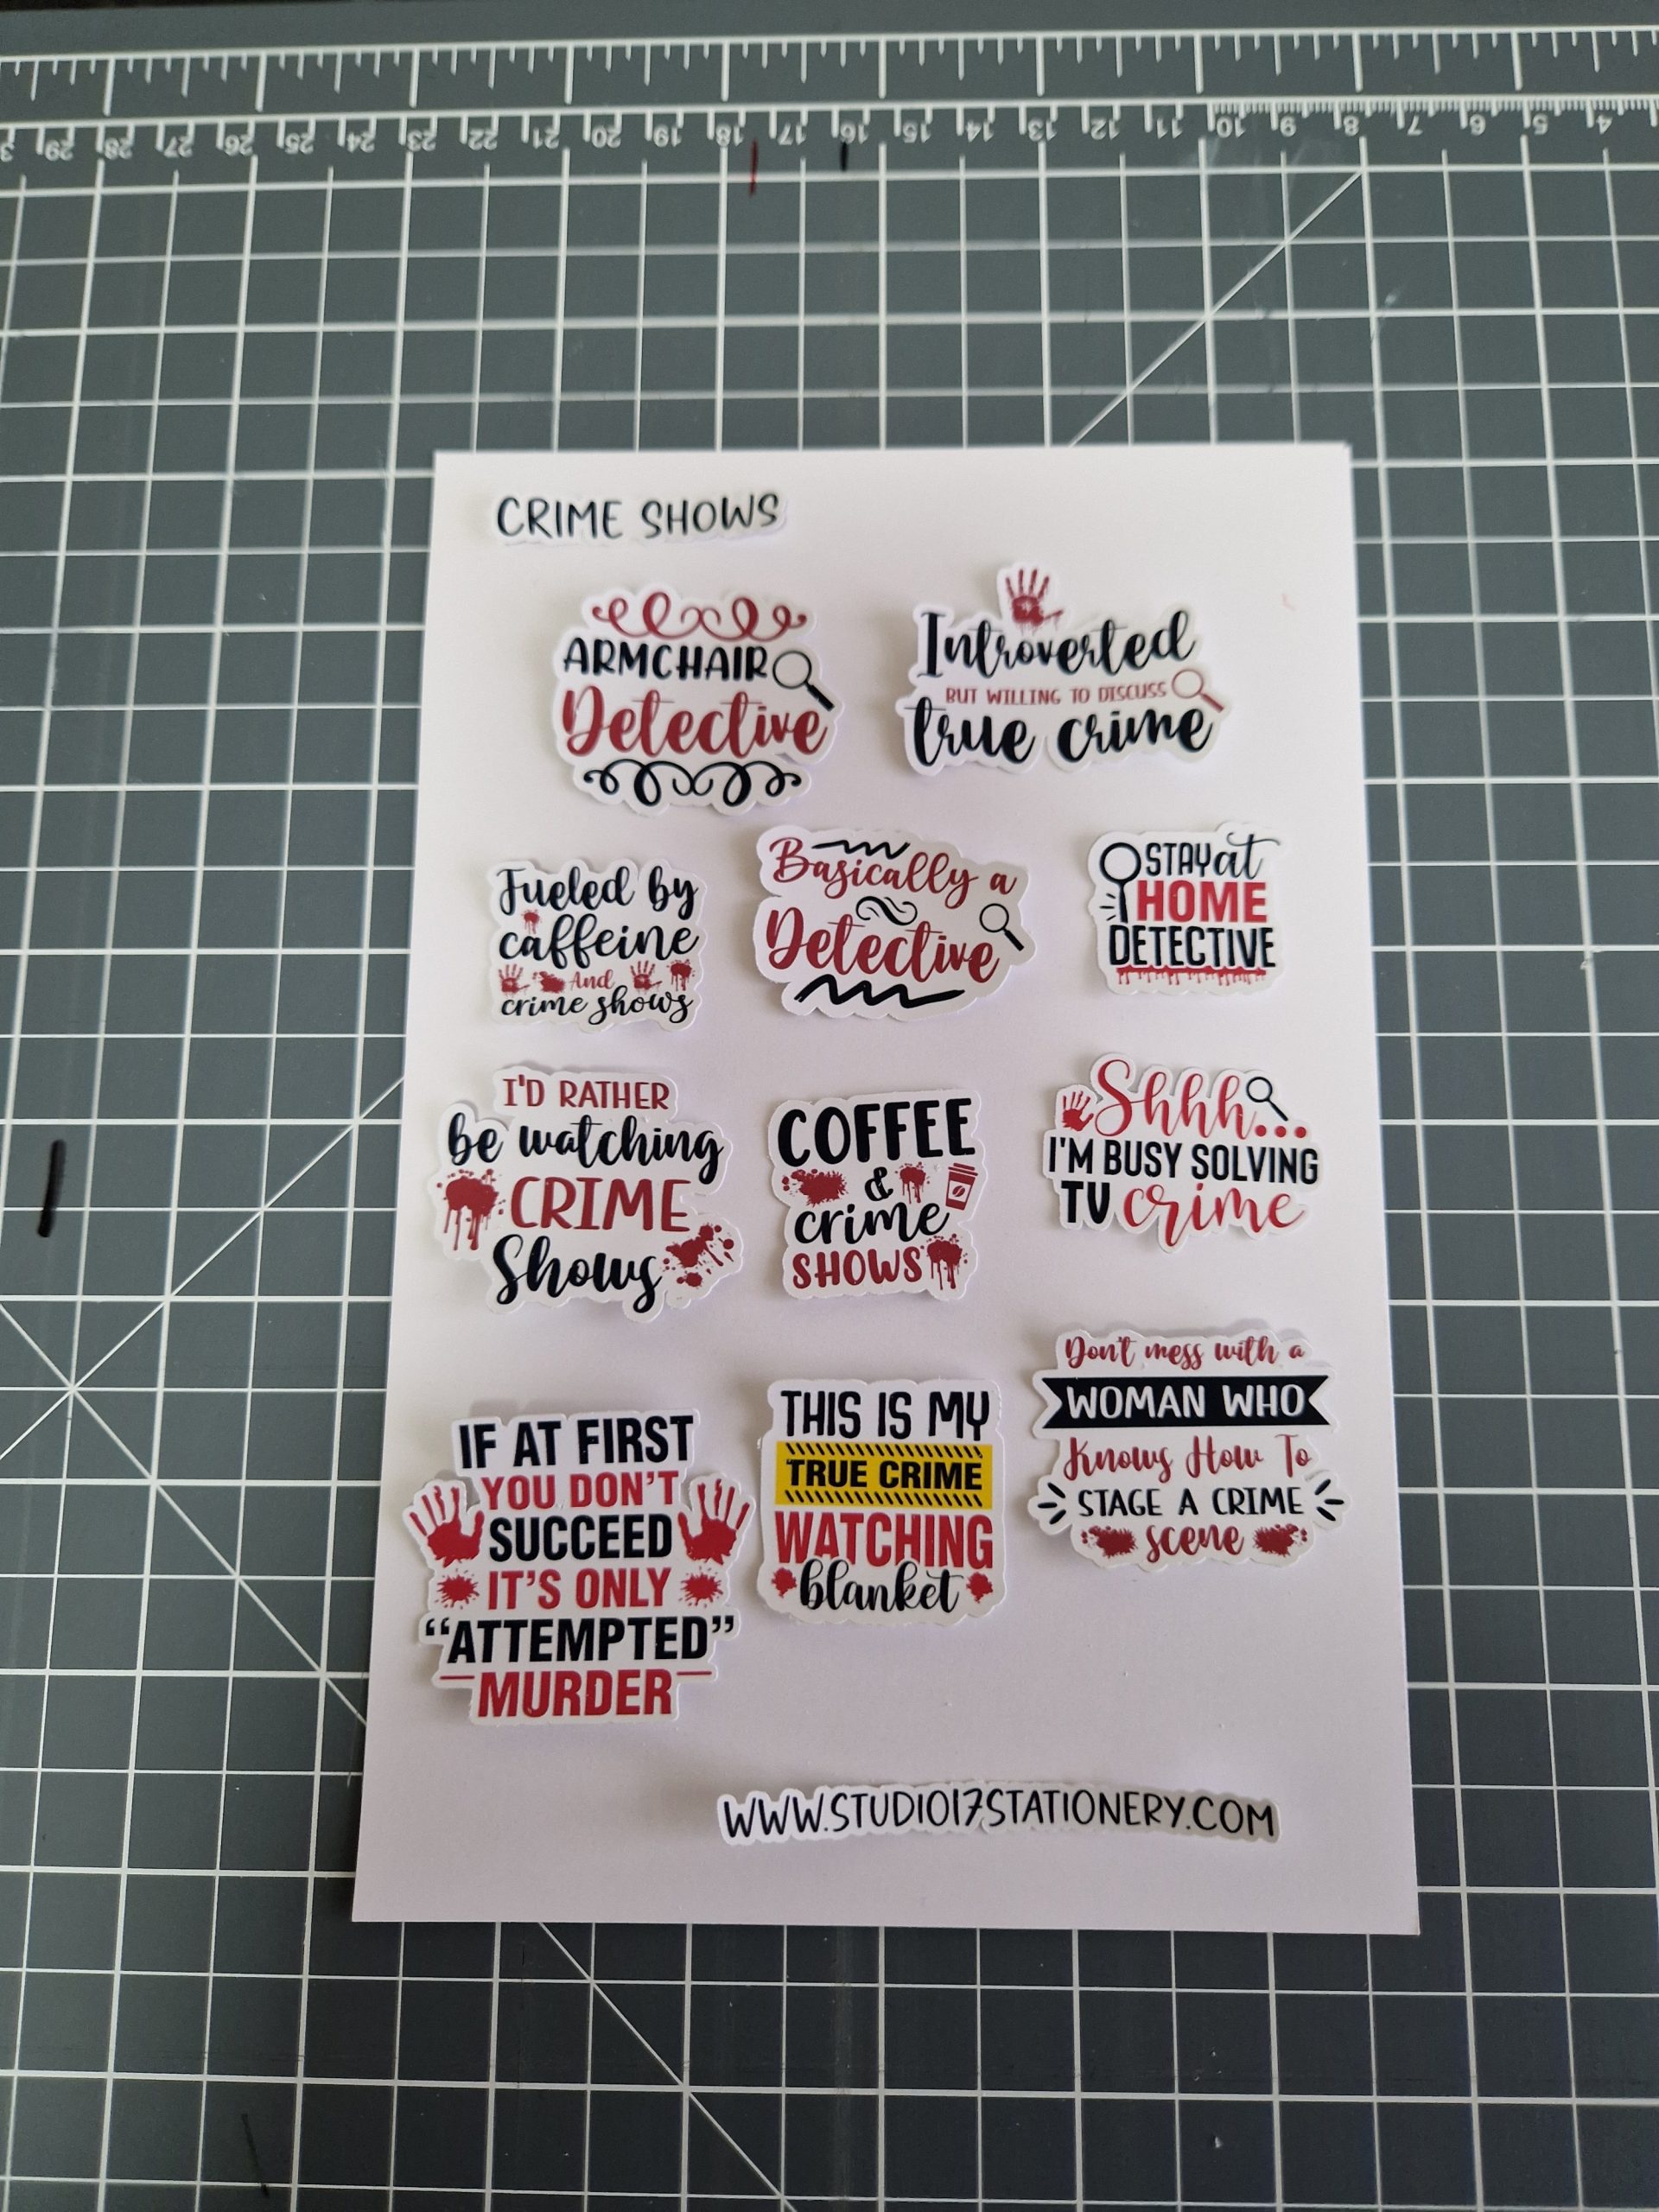 3 29 28 27 26 25 24 23 22 21 20 19 18 17 16 15 14 13 12 11 10 9 8 7 6 5 4
CRIME SHOWS
ARMCHAIR
Detective
Introverted
BUT WILLING TO DISCUSS
true crime
Fueled by
caffeine
And
crime shows
Basically a
Detective
STAY at
HOME
DETECTIVE
I'D RATHER
be watching
CRIME
Shows
COFFEE
&
crime
SHOWS
Shhh...
I'M BUSY SOLVING
TV crime
IF AT FIRST
YOU DON'T
SUCCEED
IT'S ONLY
“ATTEMPTED”
MURDER
THIS IS MY
TRUE CRIME
WATCHING
blanket
Don't mess with a
WOMAN WHO
Knows How To
STAGE A CRIME
scene
WWW.STUDIO17STATIONERY.COM